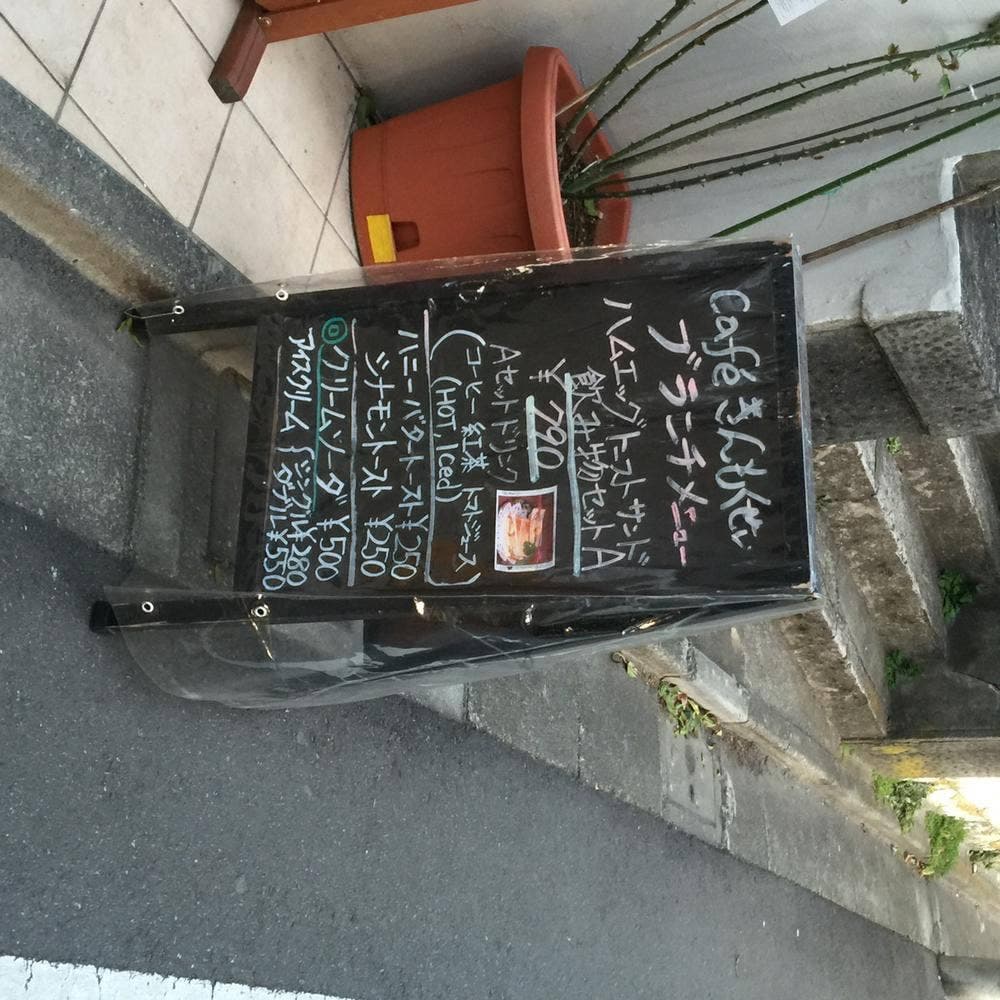 Caféきんもくせい
ブランチメニュー
ハムエッグトーストサンド
飲み物セットA
¥790
Aセットドリンク
コーヒー 紅茶 トマトジュース
(HOT, Iced)
ハニーバタートースト¥250
シナモントースト ¥250
クリームソーダ ¥500
アイスクリーム シングル¥280
ダブル¥550